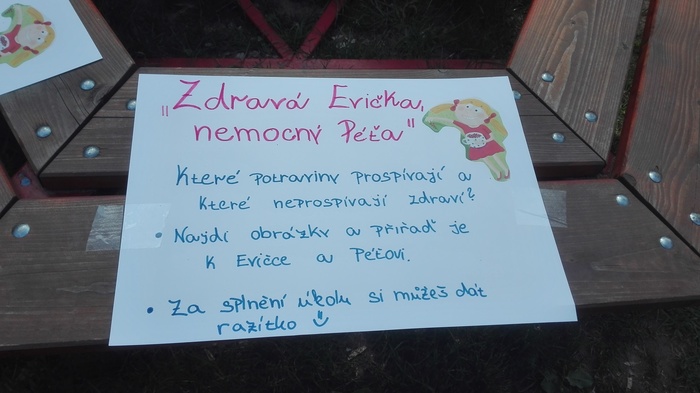 "Zdravá Evička,
nemocný Péťa"
Které potraviny prospívají a
které neprospívají zdraví?
• Najdi obrázky a přiřaď je
k Evičce a Péťovi.
• Za splnění úkolu si můžeš dát
razítko